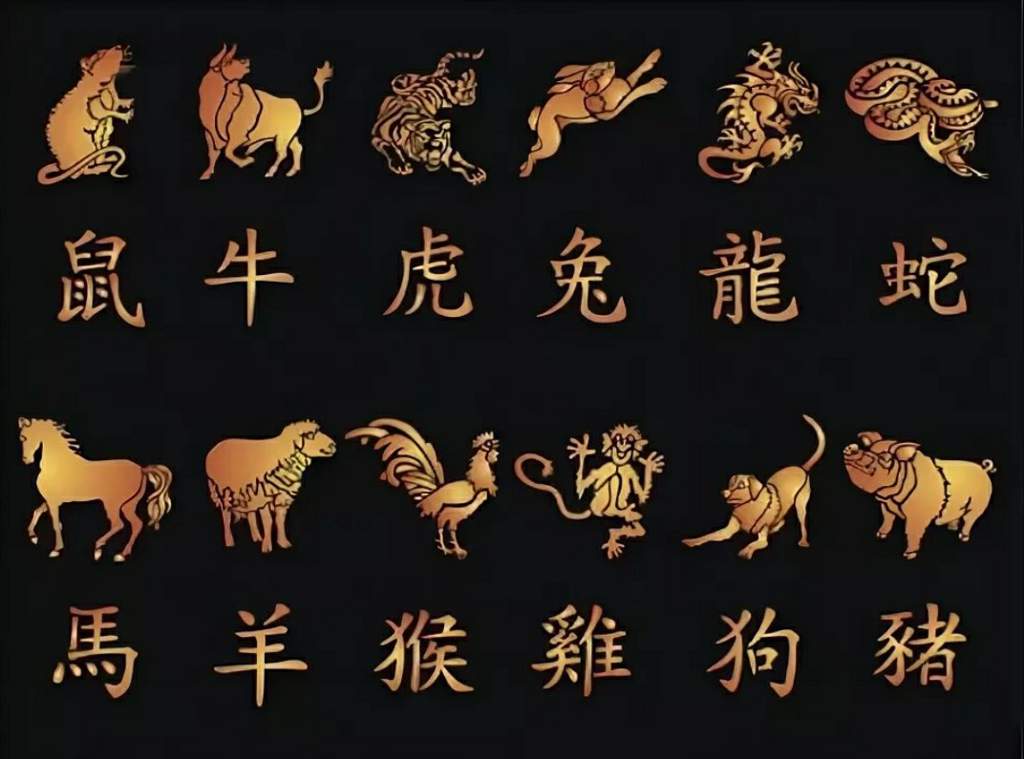 鼠 牛 虎 兔 龍 蛇
馬 羊 猴 雞 狗 豬